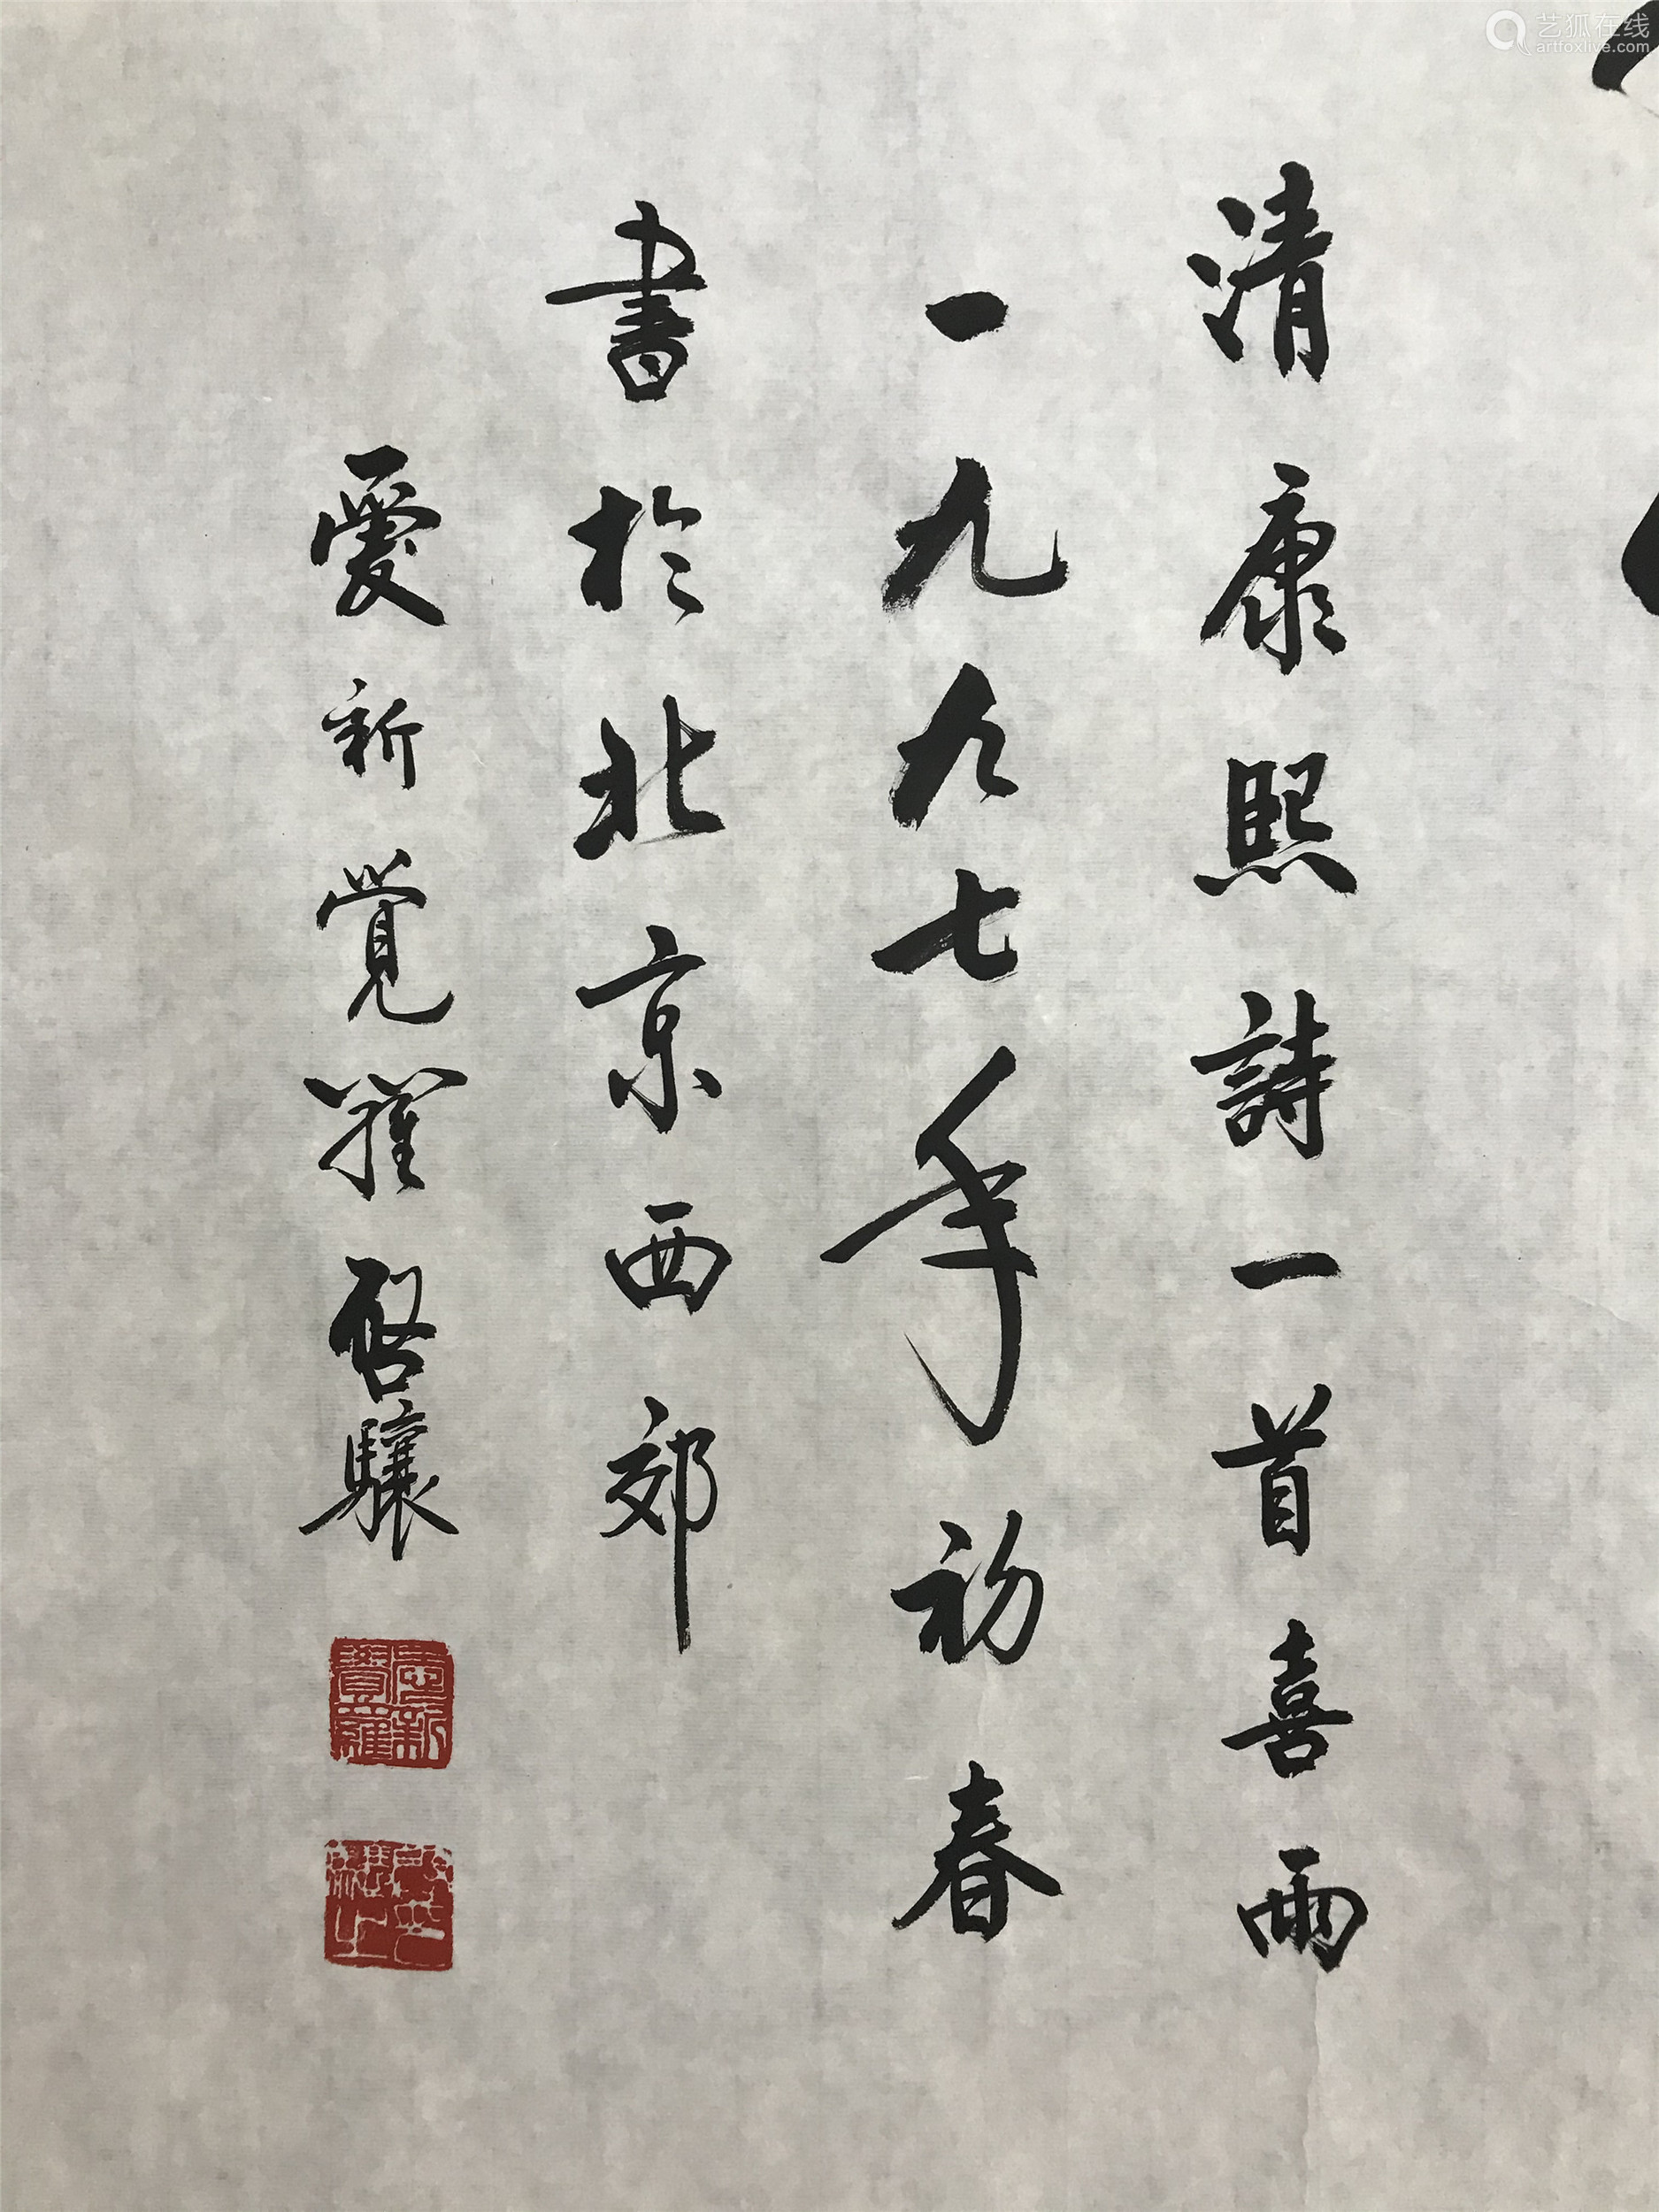 清康熙詩一首喜雨
一九九七年初春
書於北京西郊
愛新覺羅啓驤
愛新覺羅
艺狐在线
artfoxlive.com